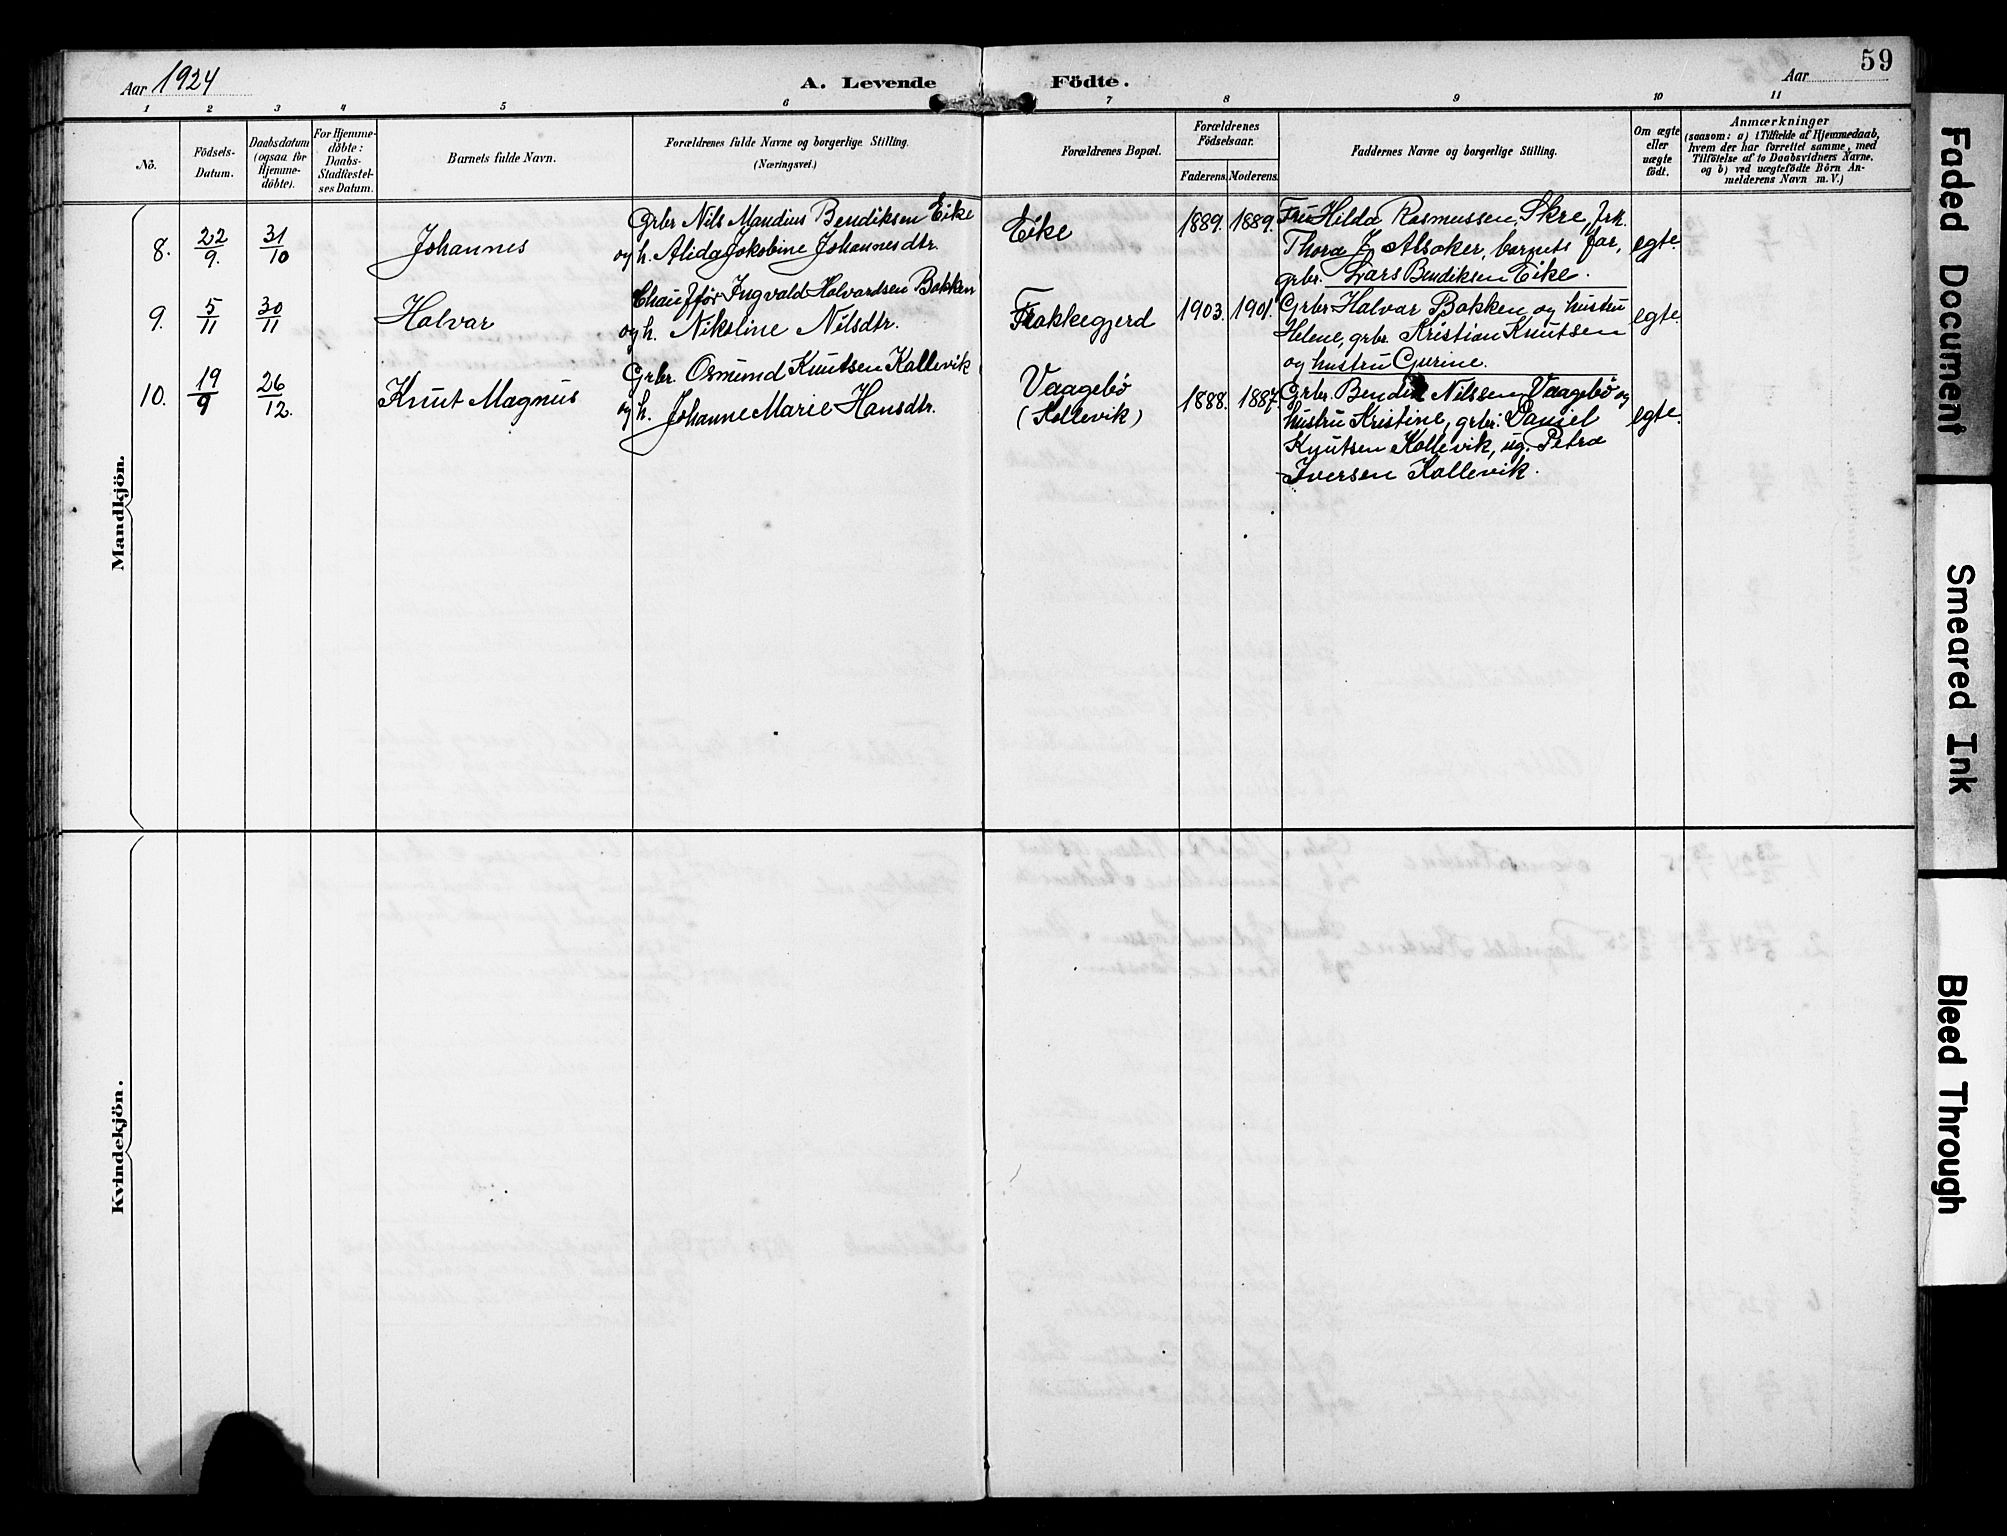 59
Aar 1924
A. Levende Födte.
Aar
1 2 3 4 5 6 7 8 9 10 11
Nö.
Födsels-
Datum.
Daabsdatum
(ogsaa for
Hjemme-
döbte).
For Hjemme-
döbte:
Daabs-
Stadfæstel-
ses Datum.
Barnets fulde Navn.
Forældrenes fulde Navne og borgerlige Stilling.
(Næringsvei.)
Forældrenes Bopæl.
Forældrenes
Födselsaar.
Faderens. Moderens.
Faddernes Navne og borgerlige Stilling.
Om ægte
eller
uægte
födt.
Anmærkninger
(saasom: a) i Tilfælde af Hjemmedaab,
hvem der har forrettet samme, med
Tilföielse af to Daabsvidners Navne.
og b) ved uægtefödte Börn An-
melderens Navn m. V.)
Mandkjön.
8. 22/9. 31/10 Johannes
Grbr Nils Mandius Bendiksen Eike
og h. Alida Jakobine Johannesdtr.
Eike
1889. 1889.
Fru Hilda Rasmussen, Skre, frk.
Thora Alsaker, barnets far,
grbr. Lars Bendiksen Eike.
egte.
9. 5/11 30/11 Halvar
Chauffør Ingvald Halvardsen Bakken
og h. Nikoline Nilsdtr.
Frakkegjerd
1903. 1901.
Grbr. Halvar Bakken og hustru
Helene, grbr. Kristian Knutsen
og hustru Gurine.
egte.
10. 19/9 26/12. Knut Magnus
Grbr. Osmund Knutsen Kallevik
og h. Johanne Marie Hansdtr.
Vaagebø
(Kallevik)
1888. 1887.
Grbr. Bendik Nilssen Vaagebø og
hustru Kristine, grbr. Daniel
Knutsen Kallevik, ug. Petra
Iversen Kallevik.
egte.
Kvindekjön.
Faded Document
Smeared Ink
Bleed Through